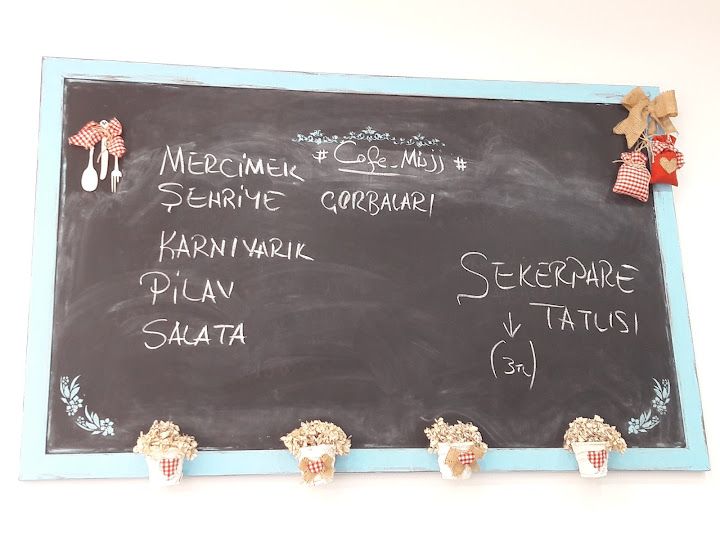 # Cafe_Miss #
MERCİMEK
ŞEHRİYE ÇORBALARI
KARNIYARIK
PİLAV
SALATA
ŞEKERPARE
TATLISI
↓
(3TL)